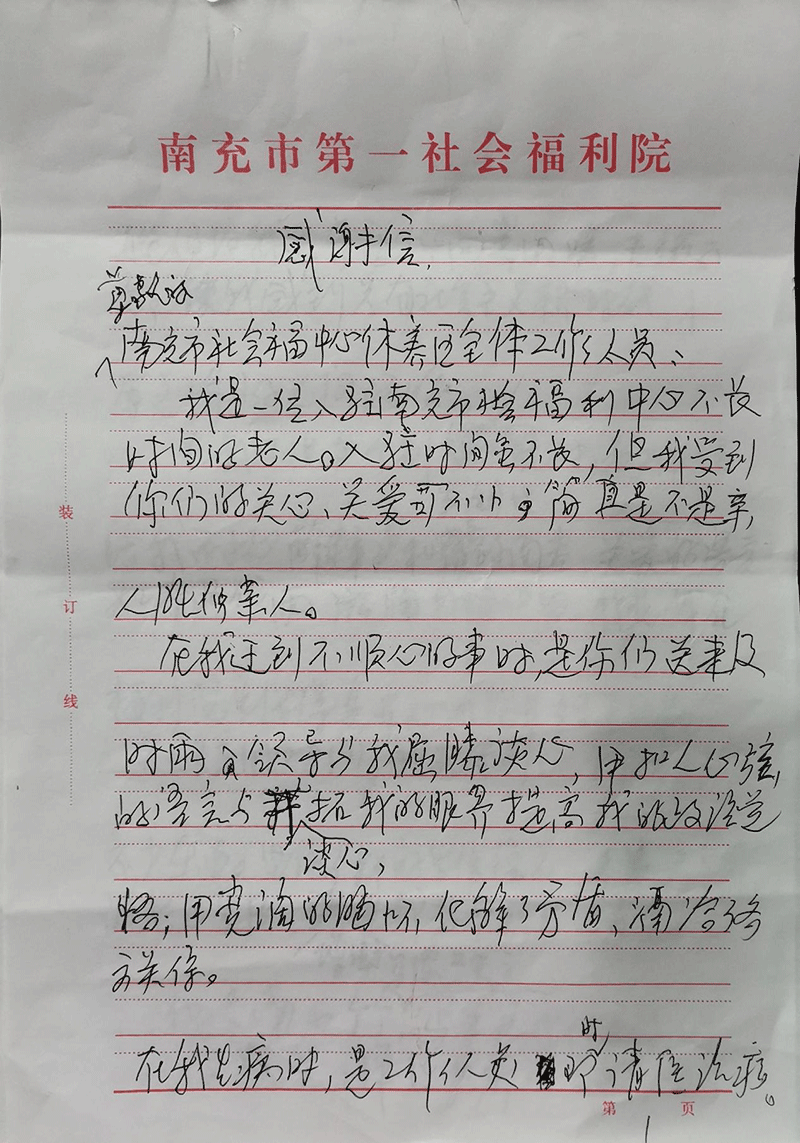 南充市第一社会福利院
感谢信
尊敬的
南充市社会福中心休养区全体工作人员、
我是一位入驻南充市社会福利中心不长
时间的老人。入驻时间虽不长,但我受到
你们的关心、关爱可不少,简直是不是亲
人胜似亲人。
装
订
线
在我遇到不顺心的事时,是你们送来及
时雨 领导与我屈膝谈心,用扣人心弦
的语言与 拓我的眼界提高我的政治觉
谈心,
悟;用宽阔的胸怀,化解了矛盾,
关系。
时
在我生病时,是工作人员 即请医治病。
第 页
1